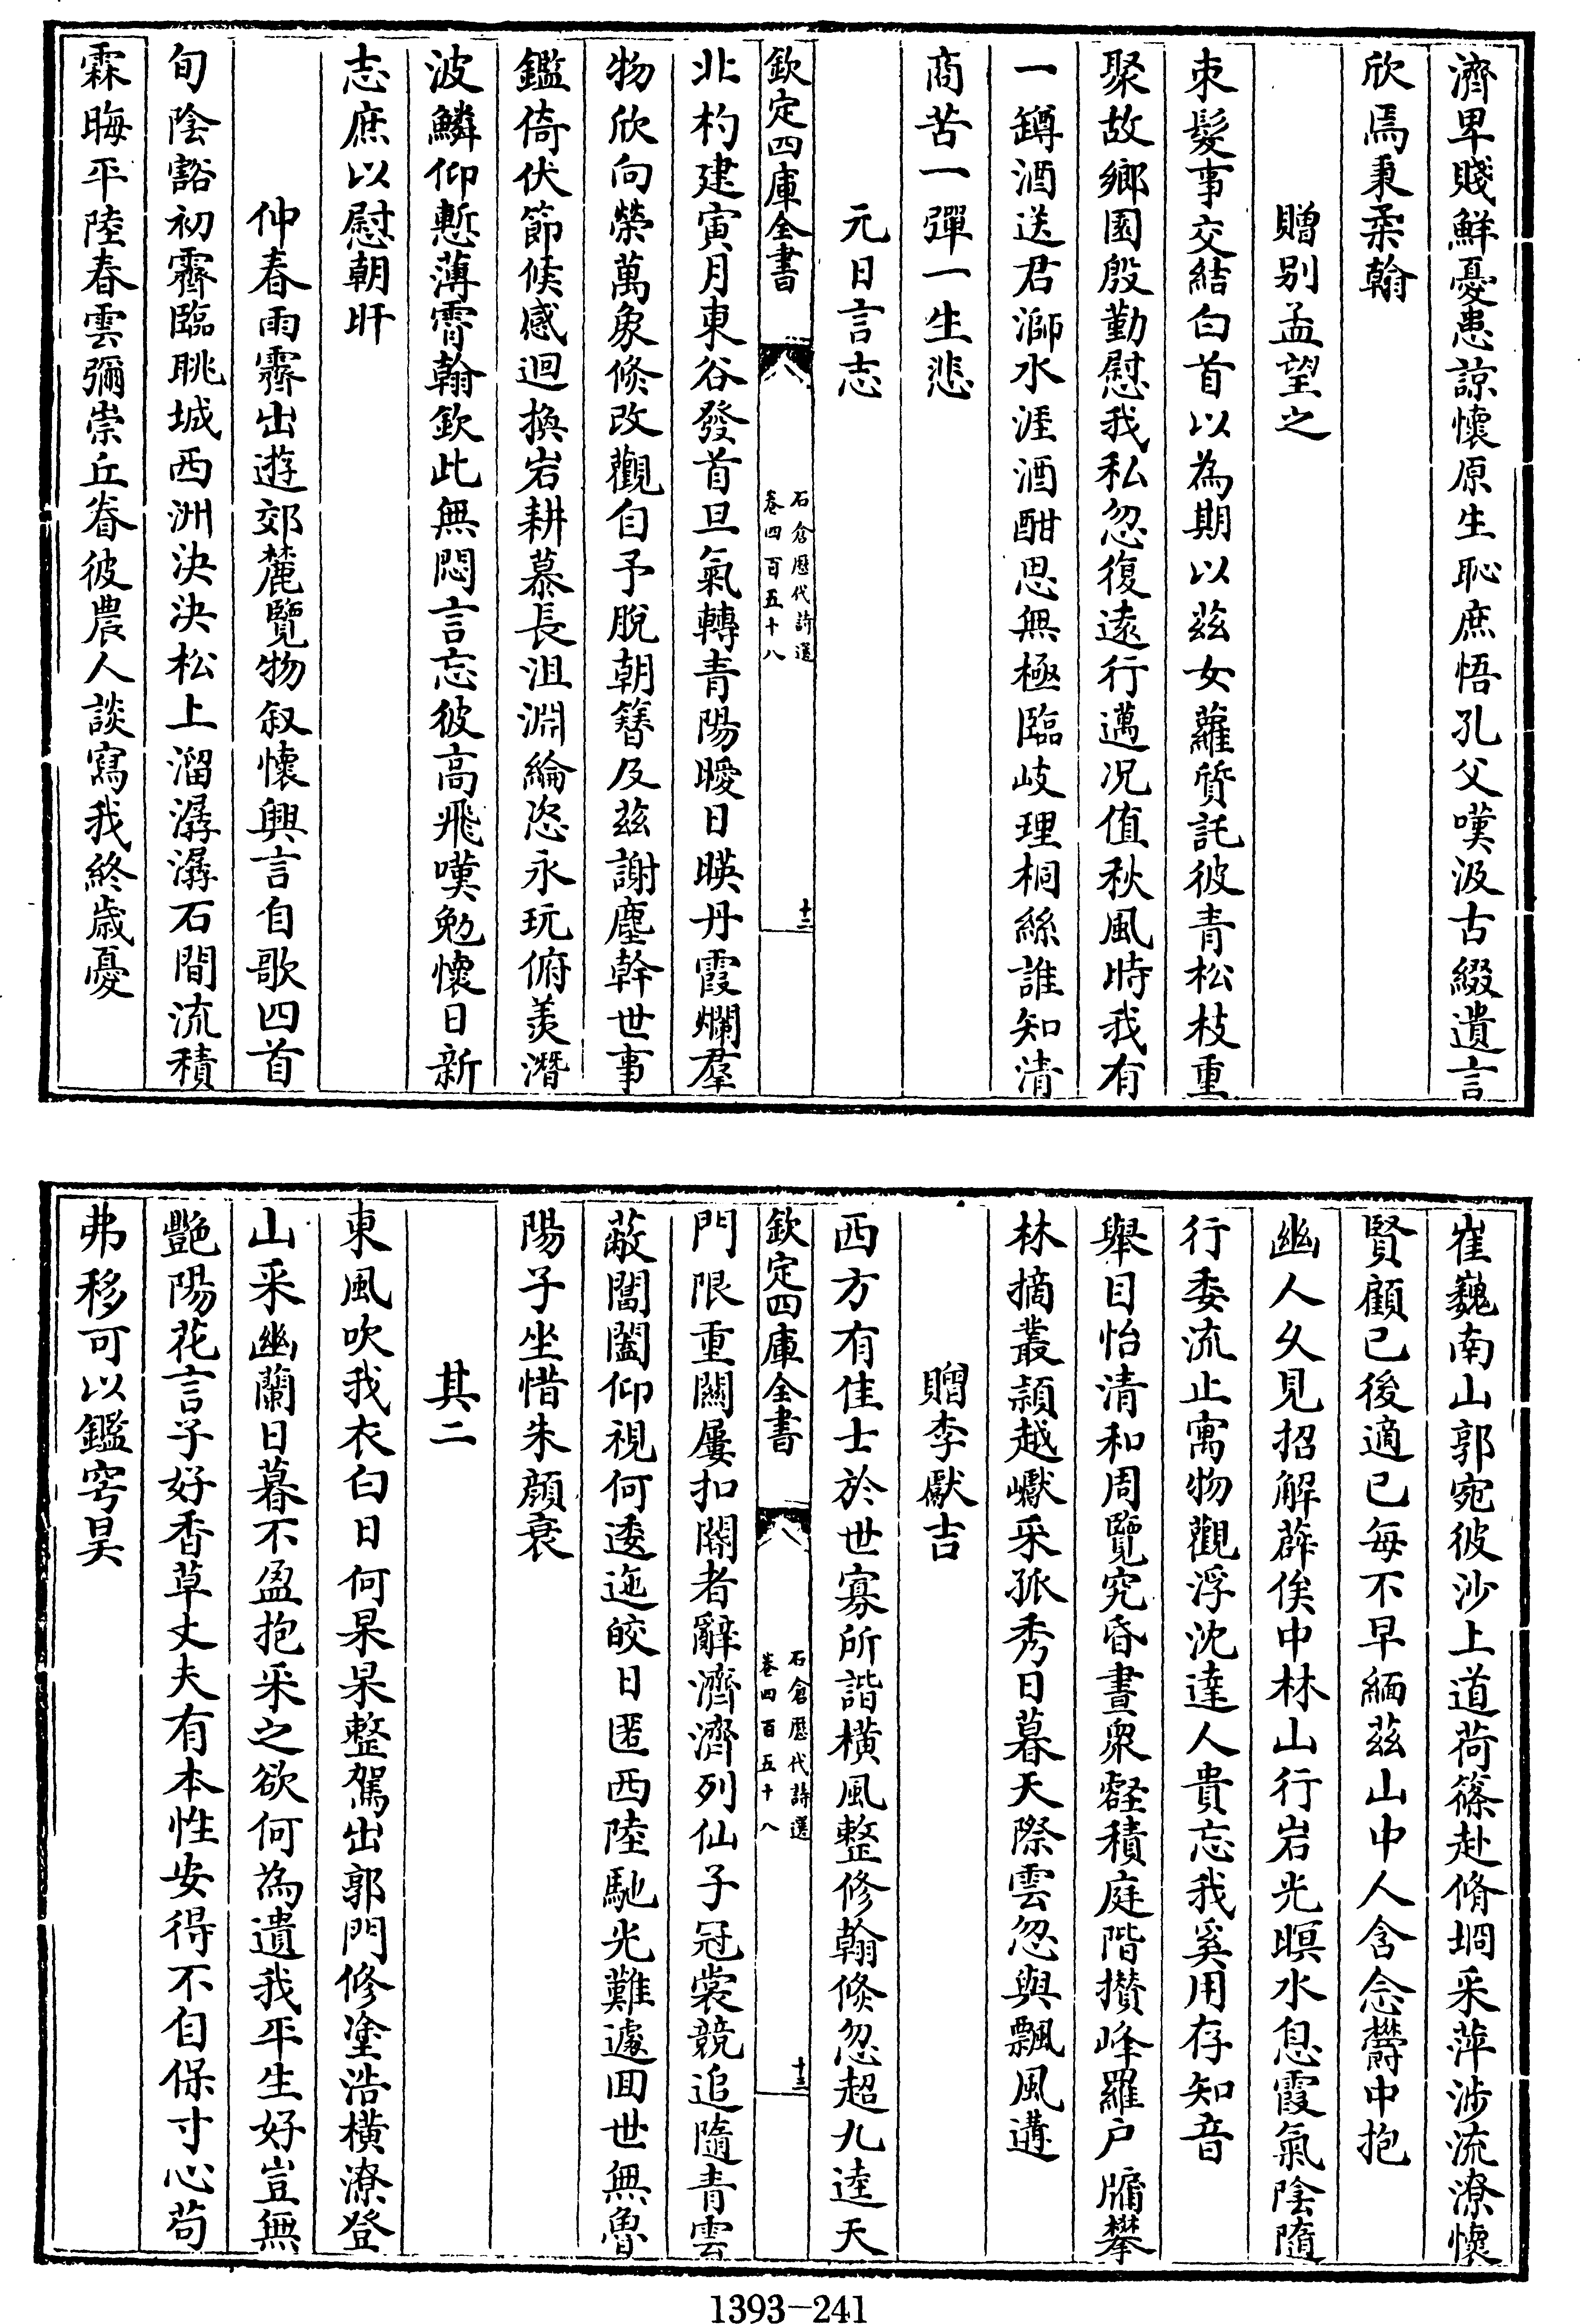 濟卑賤鮮憂患諒懷原生恥庶悟孔父嘆汲古綴遺言
欣焉秉柔翰
贈別孟望之
束髮事交結白首以為期以茲女蘿質託彼青松枝重
聚故鄉園殷勤慰我私忽復遠行邁况值秋風時我有
一罇酒送君㶉水涯酒酣思無極臨岐理桐絲誰知清
商苦一彈一生悲
元日言志
欽定四庫全書
石倉歷代詩選
卷四百五十八
十二
北杓建寅月東谷發首旦氣轉青陽曖日暎丹霞爛羣
物欣向榮萬象倏改觀自予脫朝簪及茲謝塵幹世事
鑑倚伏節候感迴換岩耕慕長沮淵綸恣永玩俯羨潛
波鱗仰慙薄霄翰欽此無悶言忘彼高飛嘆勉懷日新
志庶以慰朝旰
仲春雨霽出遊郊麓覽物叙懷興言自歌四首
旬陰豁初霽臨眺城西洲決決松上溜潺潺石間流積
霖晦平陸春雲彌崇丘眷彼農人談寫我終歲憂
崔巍南山郭宛彼沙上道荷篠赴脩坰采萍涉流潦懷
賢顧已後適已每不早緬茲山中人含念欝中抱
幽人久見招解薜俟中林山行岩光暝水息霞氣陰隨
行委流止寓物觀浮沈達人貴忘我奚用存知音
舉目怡清和周覽究昏晝衆壑積庭階攢峰羅户牖攀
林摘叢頴越巘采孤秀日暮天際雲忽與飄風遘
贈李獻吉
西方有佳士於世寡所諧横風整修翰倐忽超九逵天
欽定四庫全書
石倉歷代詩選
卷四百五十八
十三
門限重關屢扣閽者辭濟濟列仙子冠裳競追隨青雲
蔽閶闔仰視何逶迤皎日匿西陸馳光難遽回世無魯
陽子坐惜朱顔衰
其二
東風吹我衣白日何杲杲整駕出郭門修塗浩横潦登
山采幽蘭日暮不盈抱采之欲何為遺我平生好豈無
艷陽花言子好香草丈夫有本性安得不自保寸心苟
弗移可以鑑穹昊
1393-241